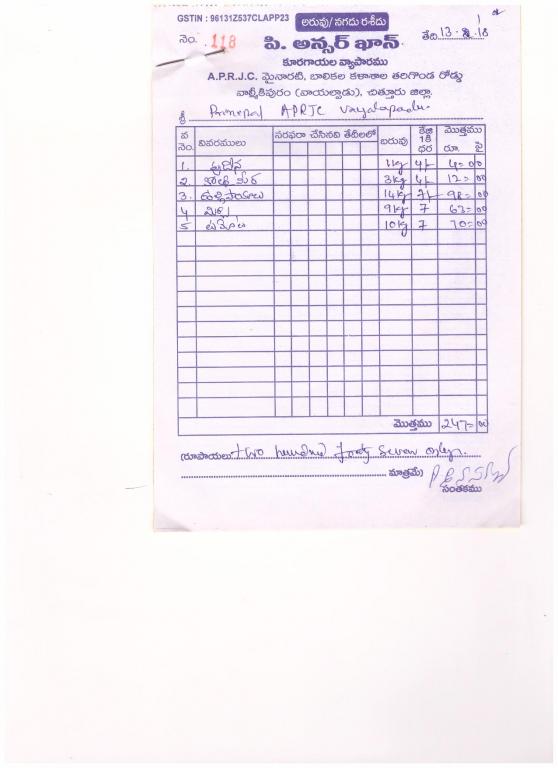 GSTIN : 96131Z537CLAPP23
అరువు/ నగదు రశీదు
నెం. 118
తేది 13-8-18
పి. అన్సర్ ఖాన్
కూరగాయల వ్యాపారము
A.P.R.J.C. మైనారటీ, బాలికల కళాశాల తరిగొండ రోడ్డు
వాల్మీకిపురం (వాయల్పాడు), చిత్తూరు జిల్లా
శ్రీ Principal APRJC Vayalapadu.
వ నెం. వివరములు సరఫరా చేసినవి తేదీలలో బరువు కేజి 1కి ధర మొత్తము రూ. పై
1. పుదీన 1kg 4/- 4=00
2. కొత్తిమీర 3kg 4/- 12=00
3. ఉల్లిపాయలు 14kg 7/- 98=00
4 9kg 7 63=00
5 టమోటా 10kg 7 70=00
మొత్తము 247=00
(రూపాయలు two hundred forty seven only.
మాత్రమే)
సంతకము